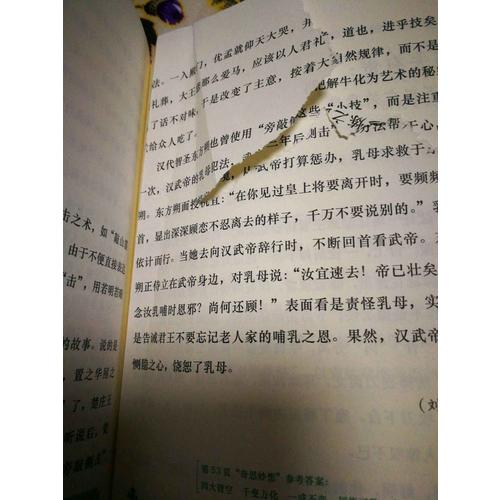 击之术，如“敲山震
由于不便直接表达
“击”，用若明若暗
的故事。说的是
，置之华屋之
了，楚庄王
听说后，便
旁敲侧击”
法。一入殿门，优孟就仰天大哭，并
礼葬，大王那么爱马，应该以人君礼
了话不对味，于是改变了主意，按着大
给众人吃了。
道也，进乎技矣
自然规律，而不是
把解牛化为艺术的秘
这些“小技”，而是注重
汉代智圣东方朔也曾使用“旁敲
侧击”
一次，汉武帝的乳母犯法，
武帝打算惩办，乳母求救于
朔。东方朔面授机宜：“在你见过皇上将要离开时，要频频
首，显出深深顾恋不忍离去的样子，千万不要说别的。”
依计而行。当她去向汉武帝辞行时，不断回首看武帝。
朔正侍立在武帝身边，对乳母说：“汝宜速去！帝已壮矣
念汝乳哺时恩邪？尚何还顾！”表面看是责怪乳母，实
是告诫君王不要忘记老人家的哺乳之恩。果然，汉武帝
恻隐之心，饶恕了乳母。
第53页“奇思妙想”参考答案：
四大皆空 千变万化